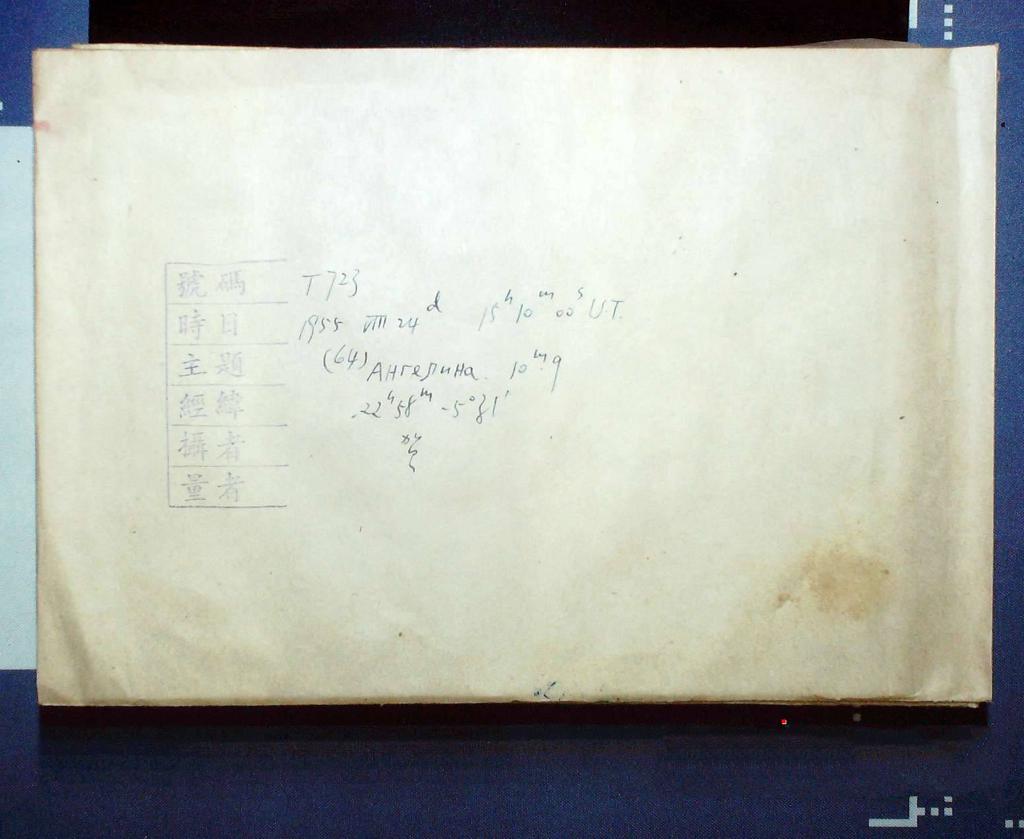 號碼 T 723
時日 1955 VIII 24ᵈ 15ʰ 10ᵐ 00ˢ U.T.
主題 (64) Ангелина. 10ᵐ.9
經緯 22ʰ58ᵐ -5°31'
攝者
量者